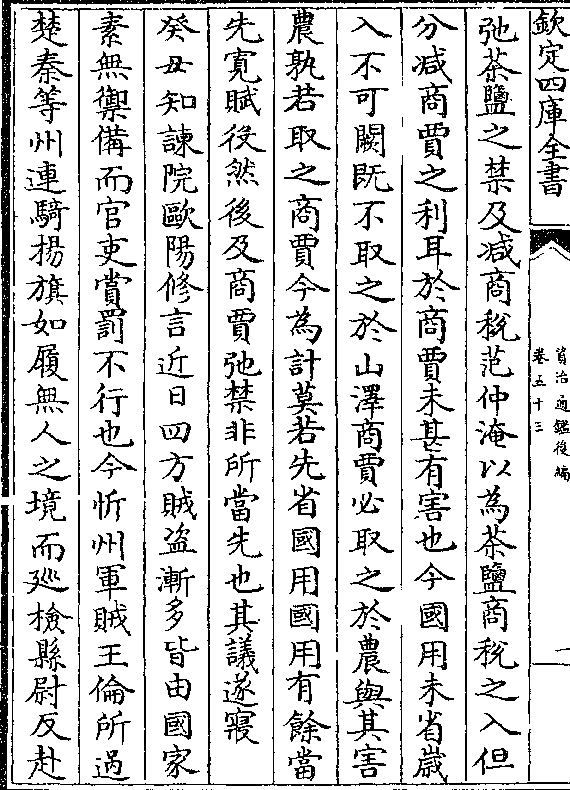 欽定四庫全書
資治通鑑後編
卷五十三
一
弛茶鹽之禁及减商稅范仲淹以為茶鹽商稅之入但
分减商賈之利耳於商賈未甚有害也今國用未省歳
入不可闕既不取之於山澤商賈必取之於農與其害
農孰若取之商賈今為計莫若先省國用國用有餘當
先寛賦役然後及商賈弛禁非所當先也其議遂寢
癸丑知諫院歐陽修言近日四方賊盗漸多皆由國家
素無禦備而官吏賞罰不行也今忻州軍賊王倫所過
楚泰等州連騎揚旗如履無人之境而廵檢縣尉反赴